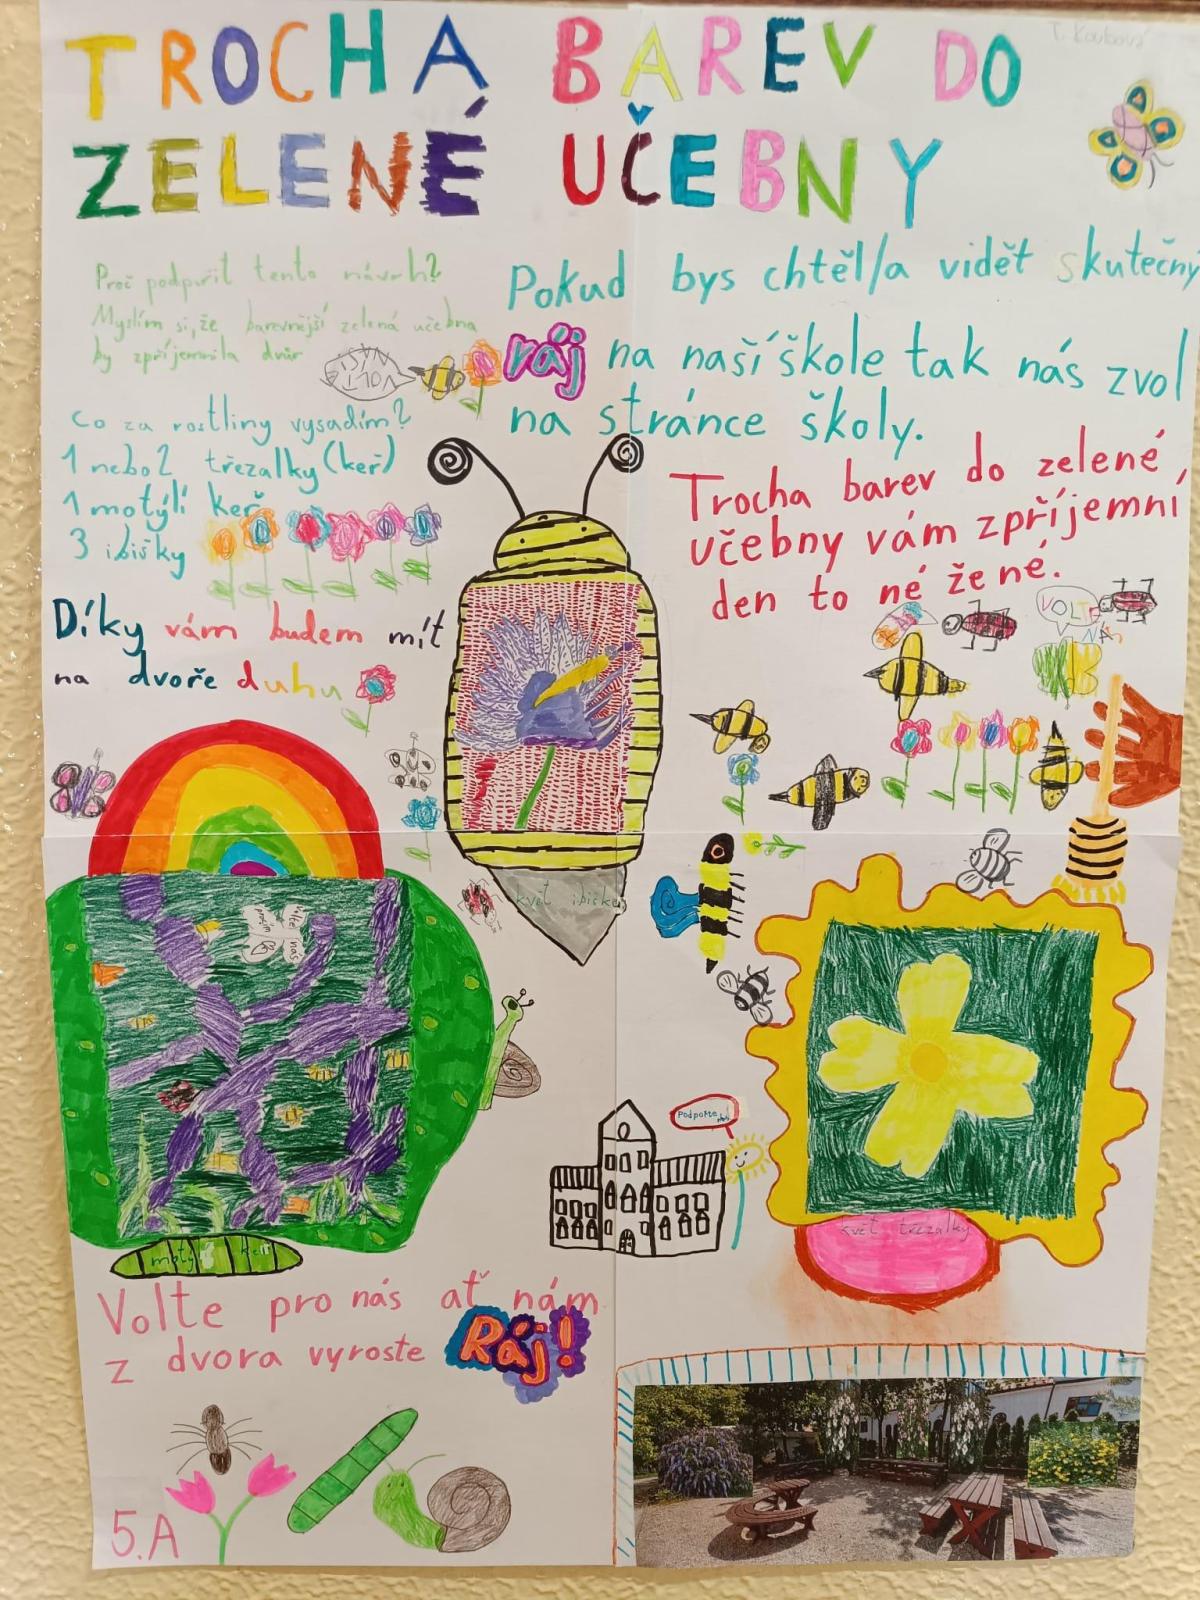 TROCHA BAREV DO
ZELENÉ UČEBNY
T. Koubová
Proč podpořit tento návrh?
Myslím si, že barevnější zelená učebna
by zpříjemnila dvůr
Pokud bys chtěl/a vidět skutečný
ráj na naší škole tak nás zvol
na stránce školy.
Co za rostliny vysadím?
1 nebo 2 třezalky (keř)
1 motýlí keř
3 ibišky
Trocha barev do zelené
učebny vám zpříjemní
den to né že né.
VOLTE
NÁS
Díky vám budem mít
na dvoře duhu
květ ibišku
Volte nás
prosím
Podpořte
květ třezalky
motýlí keř
Volte pro nás ať nám
z dvora vyroste Ráj!
5.A